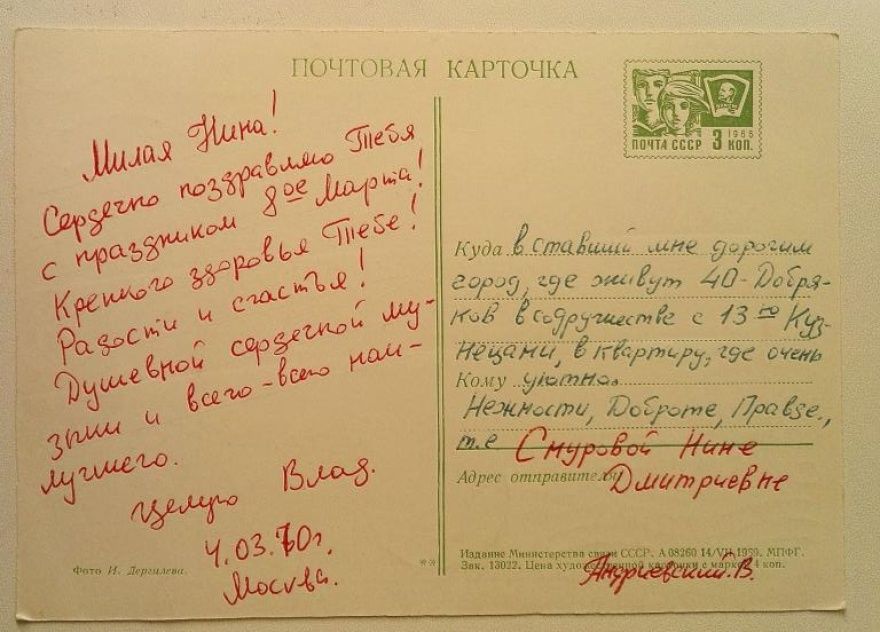 ПОЧТОВАЯ КАРТОЧКА
ПОЧТА СССР 3 КОП.
1966
Милая Нина!
Сердечно поздравляю Тебя
с праздником 8ое Марта!
Крепкого здоровья Тебе!
Радости и счастья!
Душевной сердечной му-
зыки и всего-всего наи-
лучшего.
Целую Влад.
4.03.70г.
Москва.
Фото И. Дергилева.
**
Куда в ставший мне дорогим
город, где живут 40-Добря-
ков в содружестве с 13ю Куз-
нецами, в квартиру, где очень
Кому уютно.
Нежности, Доброте, Правде,
т.е Смуровой Нине
Адрес отправителя Дмитриевне
Издание Министерства связи СССР. А 08260 14/VII 1969. МПФГ.
Зак. 13022. Цена художественной карточки с маркой 4 коп.
Андриевский.В.